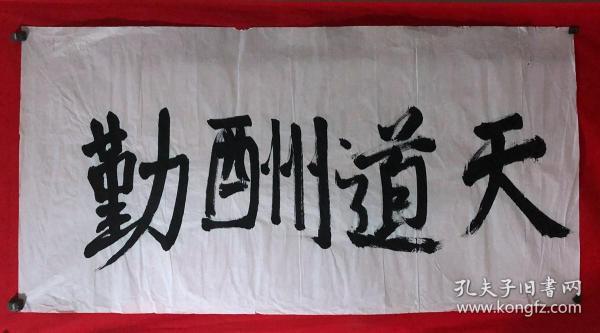 天道酬勤
孔夫子旧書网
www.kongfz.com